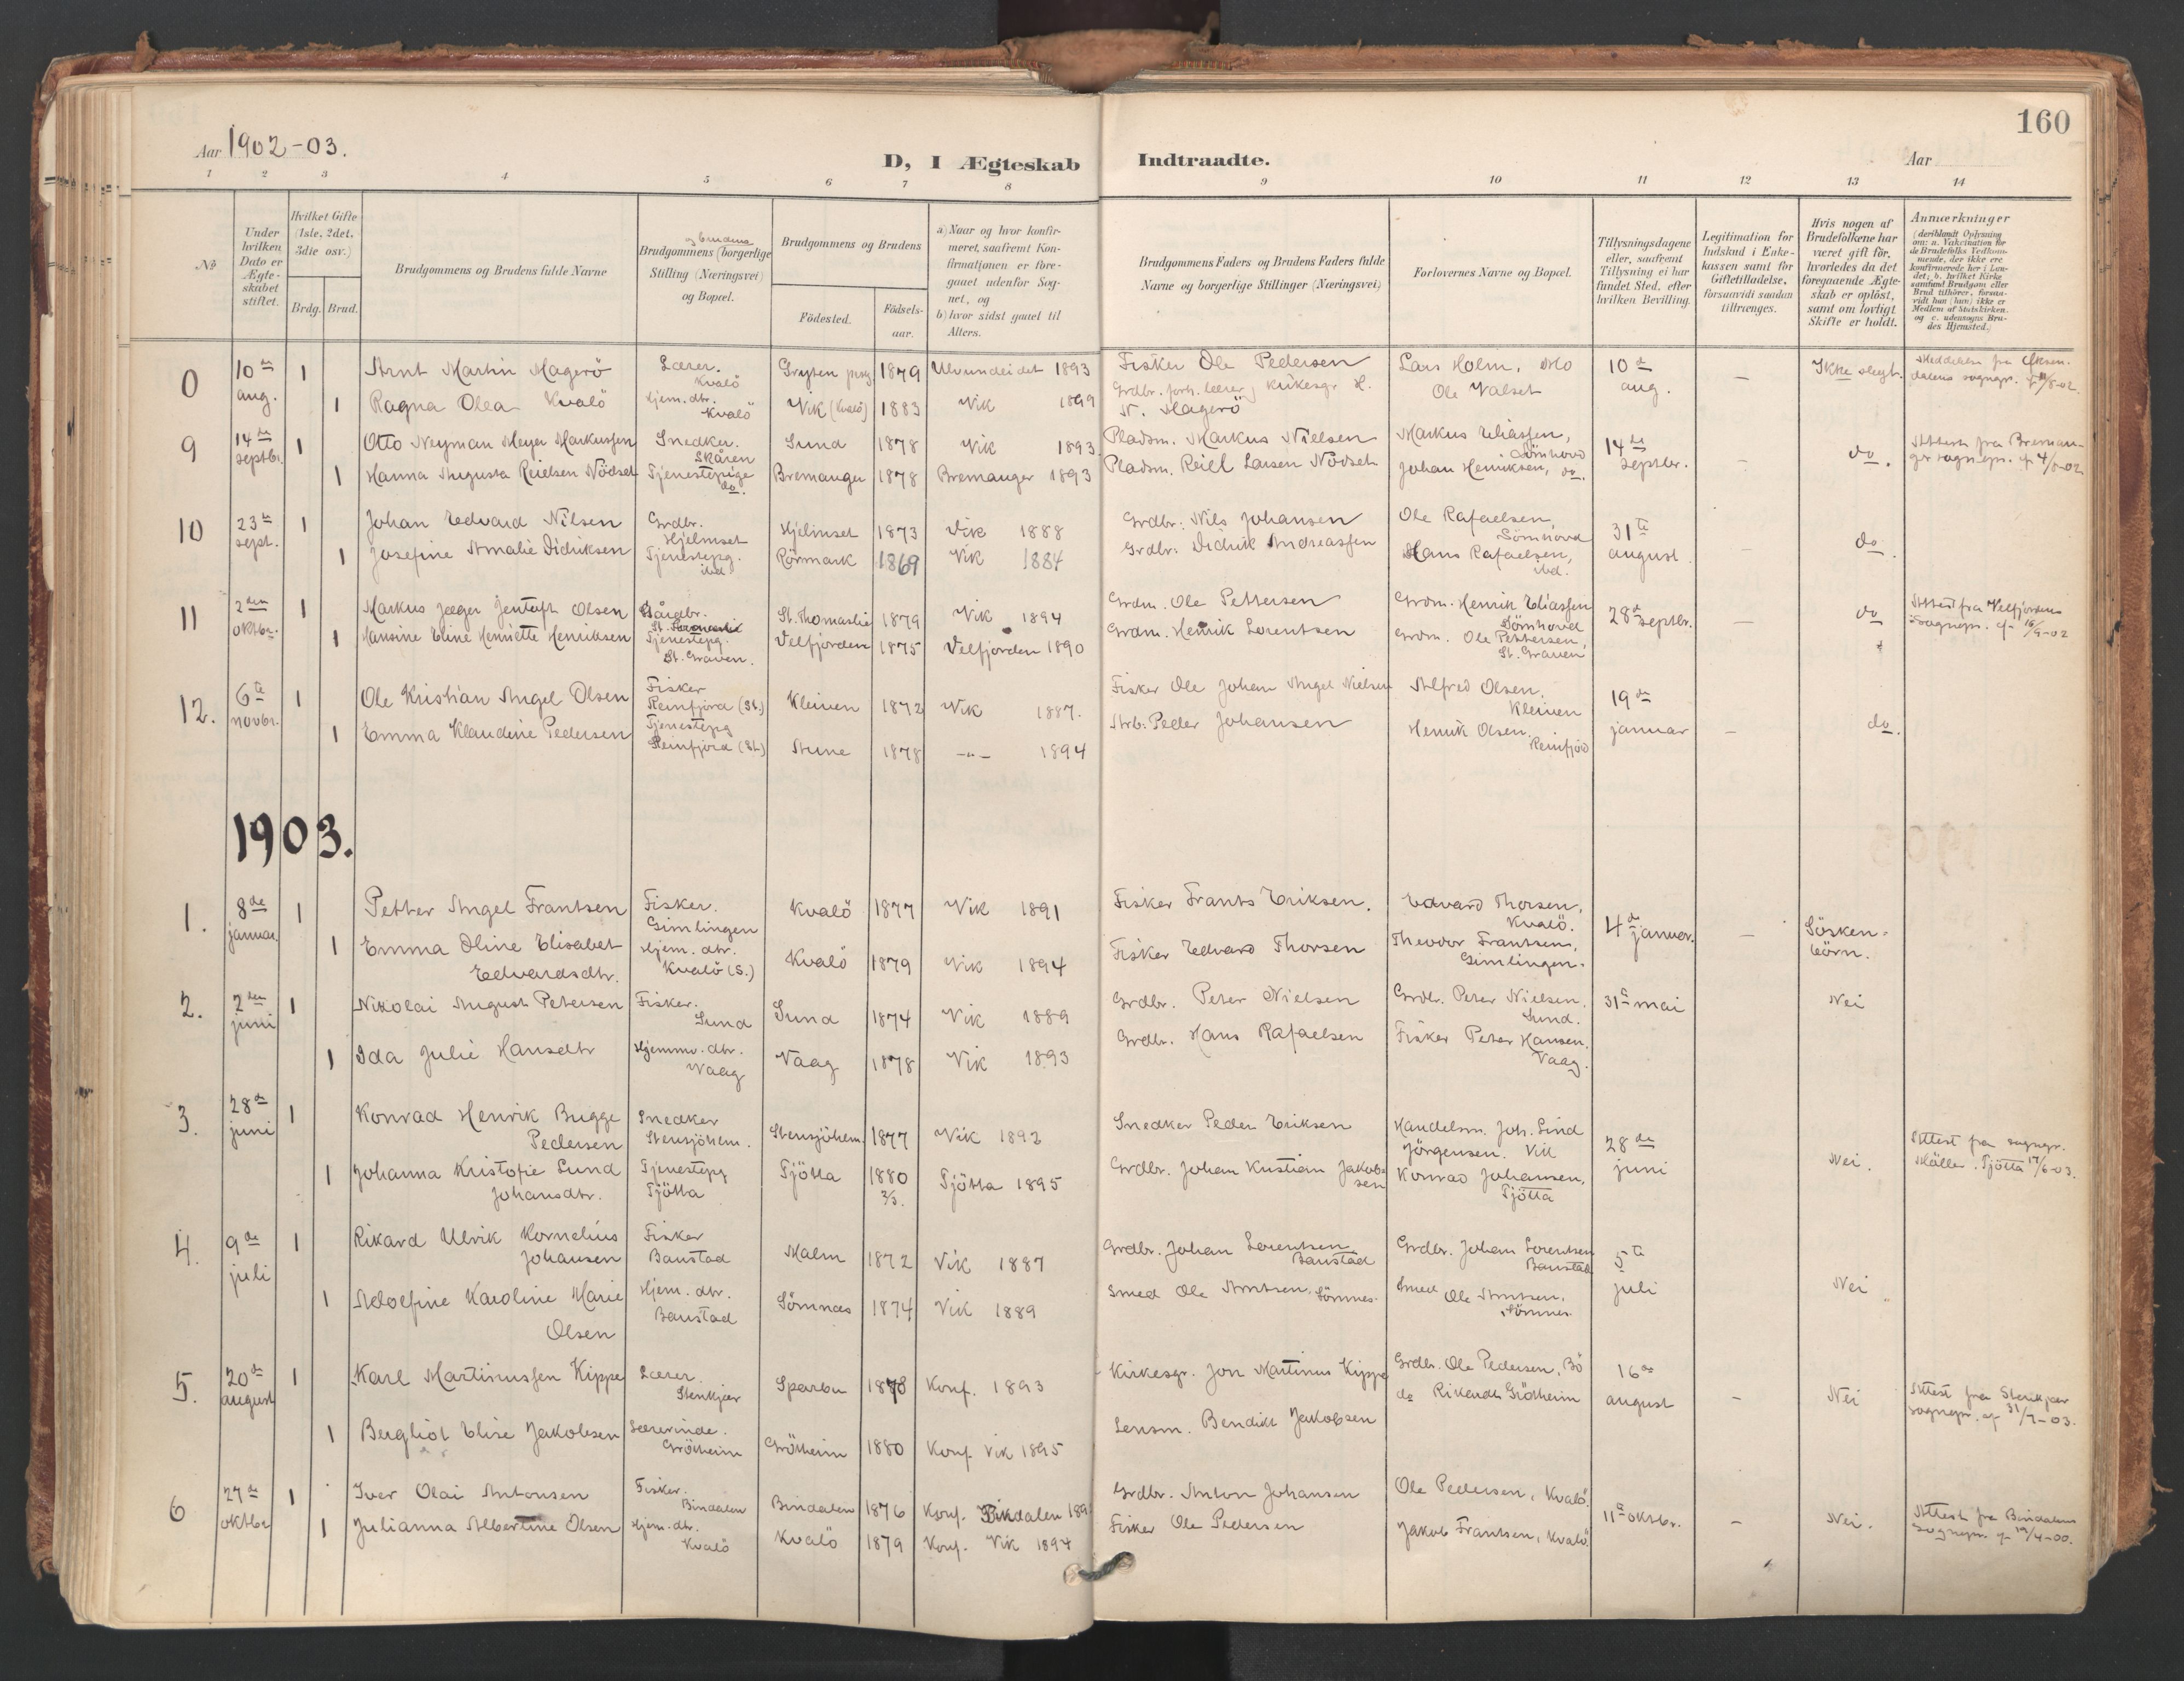 160
Aar 1902-03.
D, I Ægteskab Indtraadte.
Aar
1 2 3 4 5 6 7 8 9 10 11 12 13 14
No
Under hvilken Dato er Ægteskabet stiftet.
Hvilket Gifte (1ste, 2det, 3die osv.)
Brdg. Brud.
Brudgommens og Brudens fulde Navne
og brudens
Brudgommens (borgerlige Stilling (Næringsvei) og Bopæl.
Brudgommens og Brudens
Födested.
Födsels-aar.
a) Naar og hvor konfirmeret, saafremt Konfirmationen er foregaaet udenfor Sognet, og
b) hvor sidst gaaet til Alters.
Brudgommens Faders og Brudens Faders fulde Navne og borgerlige Stillinger (Næringsvei)
Forlovernes Navne og Bopæl.
Tillysningsdagene eller, saafremt Tillysning ei har fundet Sted, efter hvilken Bevilling.
Legitimation for Indskud i Enkekassen samt for Giftetilladelse, forsaavidt saadan tiltrænges.
Hvis nogen af Brudefolkene har været gift för, hvorledes da det foregaaende Ægteskab er oplöst, samt om lovligt Skifte er holdt.
Anmærkninger (deriblandt Oplysning om: a. Vakcination for de Brudefolks Vedkommende, der ikke ere konfirmerede her i Landet; b. hvilket Kirkesamfund Brudgom eller Brud tilhörer, forsaavidt han (hun) ikke er Medlem af Statskirken, og c. udensogns Brudes Hjemsted.)
0 10de aug. 1 Arnt Martin Magerö Lærer. Kvalö Gryten 1879 Ulvundeidet 1893 Fisker Ole Pedersen Lars Holm, Mo 10de aug. — Ikke slegt.
1 Ragna Olea Kvalö Hjem. dtr. Kvalö Vik (Kvalö) 1883 Vik 1899 Grdbr. forh. lærer, kirkesgr. H. N. Magerö Ole Valset
9 14de septbr. 1 Otto Neyman Meyer Markussen Snedker. Skåren Sund 1878 Vik 1893 Pladsm. Markus Nielsen Markus Eliassen, Sömhovd 14de septbr. — do. Attest fra Bremanger sognepr. af 4/8-02.
1 Hanna Augusta Reielsen Nödset Tjenestepige do. Bremanger 1878 Bremanger 1893 Pladsm. Reiel Larsen Nödset Johan Henriksen, do.
10 23de sept. 1 Johan Edvard Nilsen Grdbr. Hjelmset Hjelmset 1873 Vik 1888 Grdbr. Nils Johansen Ole Rafaelsen, Sömhovd 31te august — do.
1 Josefine Amalie Didriksen Tjenestepg. ibd. Rörmark 1869 Vik 1884 Grdbr. Didrik Andreassen Hans Rafaelsen, ibd.
11 2den oktbr. 1 Markus Jæger Jentoft Olsen Gårdbr. St. Thomaslie 1879 Vik 1894 Grdm. Ole Pettersen Grdm. Henrik Eliassen Sömhovd 28de septbr. do Attest fra Velfjordens sognepr. af 16/9-02
1 Hansine Eline Henriette Henriksen Tjenestepg. St. Graven. Velfjorden 1875 Velfjorden 1890 Grdm. Henrik Lorentsen Grdm. Ole Pettersen, St. Graven
12. 6te novbr. 1 Ole Kristian Angel Olsen Fisker Reinfjord (St.) Kleiven 1872 Vik 1887. Fisker Ole Johan Angel Nielsen Alfred Olsen, Kleiven 19de januar — do.
1 Emma Klaudine Pedersen Tjenestepg Reinfjord (St.) Stune 1878 -"- 1894 Arb. Peder Johansen Henrik Olsen. Reinfjord
1903.
1. 8de januar. 1 Petter Angel Frantsen Fisker. Gimlingen Kvalö 1877 Vik 1891 Fisker Frants Eriksen. Edvard Thorsen, Kvalö. 4de januar. — Söskenbörn.
1 Emma Oline Elisabet Edvardsdtr. Hjem. dtr. Kvalö (S.) Kvalö 1879 Vik 1894 Fisker Edvard Thorsen Theodor Frantsen, Gimlingen.
2. 2den juni 1 Nikolai August Petersen Fisker. Sund Sund 1874 Vik 1889 Grdbr. Peter Nielsen Grdb. Peter Nielsen. Sund. 31te mai Nei
1 Ida Julie Hansdtr Hjemmv. dtr. Vaag Vaag 1878 Vik 1893 Grdbr. Hans Rafaelsen Fisker Peter Hansen. Vaag.
3. 28de juni 1 Konrad Henrik Bugge Pedersen Snedker Stensjöhlm. Stensjöhlm. 1877 Vik 1892 Snedker Peder Eriksen Handelsm. Joh. Lind Jörgensen. Vik 28de juni Nei. Attest fra sogngr. Möller. Tjötta 17/6-03.
1 Johanna Kristofie Lund Johansdtr. Tjenestepg Tjötta Tjötta 1880 2/3. Tjötta 1895 Grdbr. Johan Kristian Jakobsen Konrad Johansen, Tjötta
4. 9de juli 1 Rikard Ulrik Kornelius Johansen Fisker Baustad Malm 1872 Vik 1887 Grdbr. Johan Lorentsen Baustad Grdbr. Johan Lorentsen Baustad 5te juli Nei
1 Adolfine Karoline Marie Olsen Hjem. dtr. Baustad Sömnæs 1874 Vik 1889 Smed Ole Arntsen. Sömnes. Smed Ole Arntsen, Sömnes.
5. 20de august 1 Karl Martinussen Kippe Lærer. Stenkjær Sparbu 1873 Konf. 1893 Kirkesgr. Jon Martinus Kippe Grdb. Ole Pedersen, Bö 16de august — Nei Attest fra Stenkjær sognepr. af 31/7-03.
1 Bergliot Elise Jakobsen Lærerinde. Grötheim Grötheim 1880 Konf. Vik 1895 Lensm. Bendikt Jakobsen do Rikardt Grötheim
6 27de oktbr 1 Iver Olai Antonsen Fisker. Bindalen Bindalen 1876 Konf. Bindalen Grdbr. Anton Johansen Ole Pedersen, Kvalö. 11te oktbr. — Nei. Attest fra Bindalens Sognepr. af 19/4-00.
1 Julianna Albertine Olsen Hjem. dtr. Kvalö Kvalö 1879 Konf. Vik 1894 Fisker Ole Pedersen Jakob Frantsen, Kvalö.